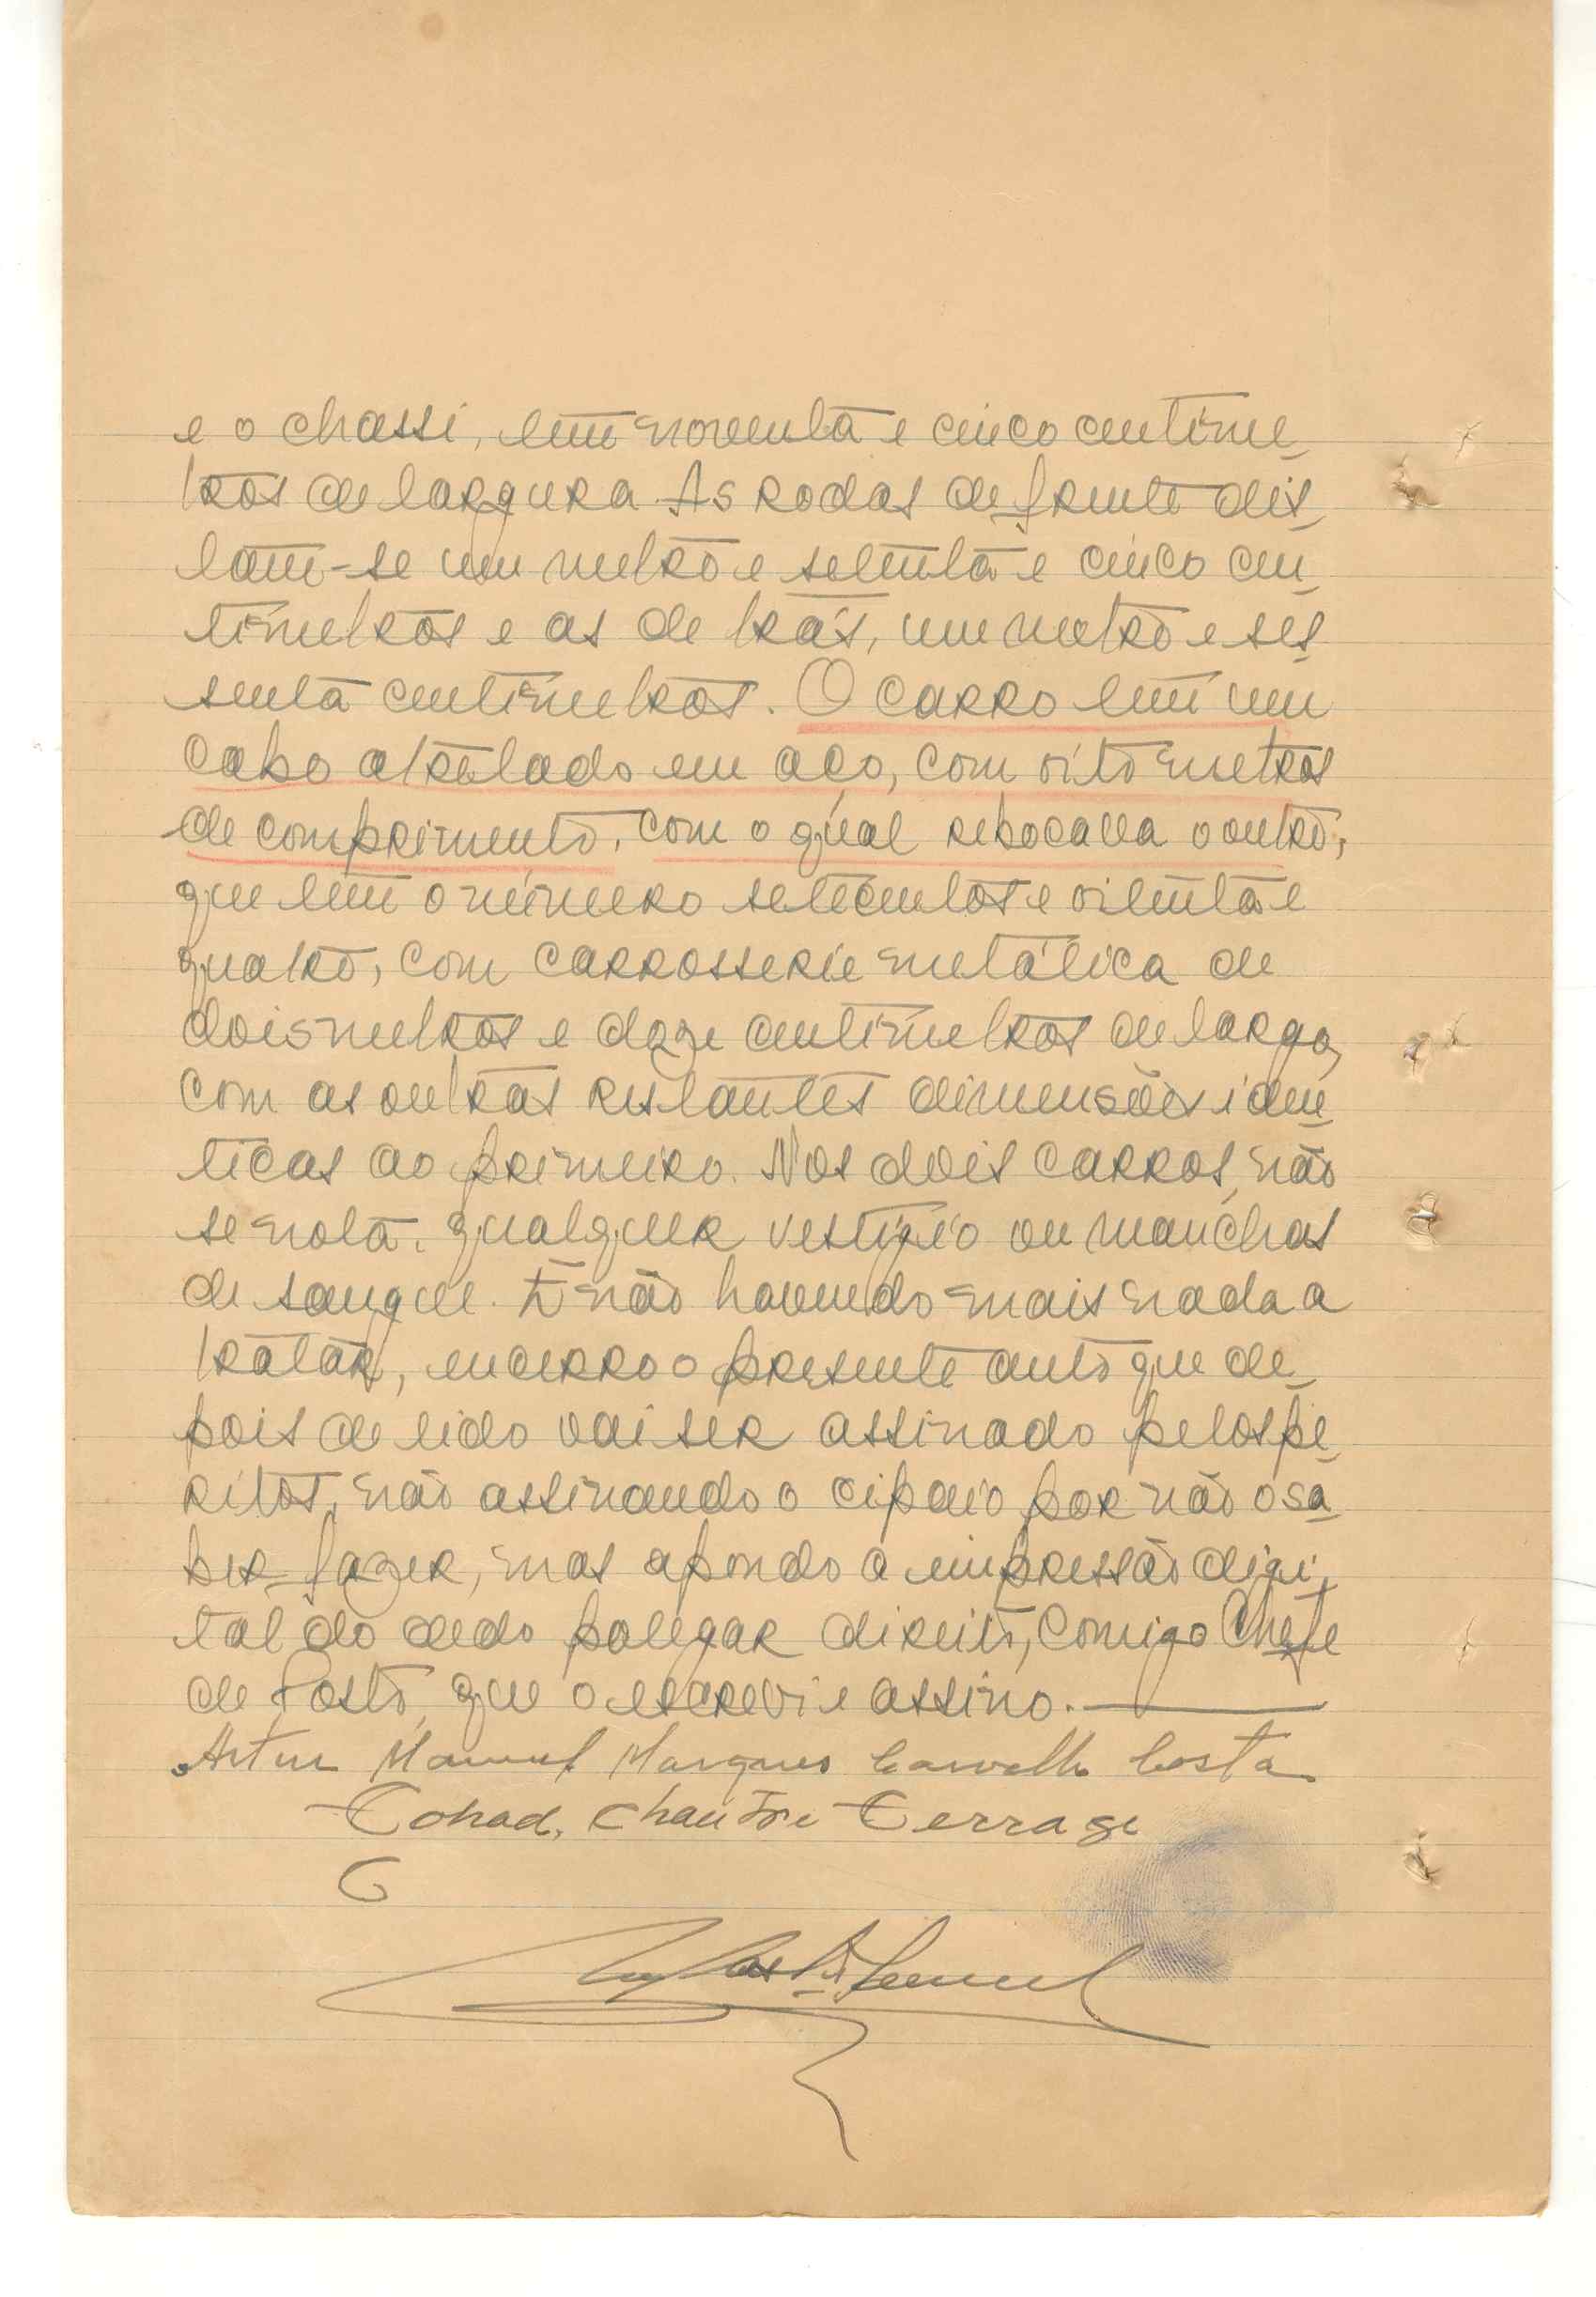 e o chassi, tem noventa e cinco centime_
tros de largura. As rodas de frente dis_
tam-se um metro e setenta e cinco cen_
tímetros e as de trás, um metro e ses_
senta centimetros. O carro tem um
cabo atrelado em aço, com oito metros
de comprimento, com o qual rebocava o outro,
que tem o número setecentos e oitenta e
quatro, com carrosserie metálica de
dois metros e doze centimetros de largo,
com as outras restantes dimensões iden_
ticas ao primeiro. Nos dois carros, não
se nota, qualquer vestígio ou manchas
de sangue. E não havendo mais nada a
tratar, encerro o presente auto que de_
pois de lido vai ser assinado pelos pe_
ritos, não assinando o cipaio por não o sa_
ber fazer, mas apondo a impressão digi_
tal do dedo polegar direito, comigo Chefe
de Posto, que o escrevi e assino.
Artur Manuel Marques Carvalho Costa